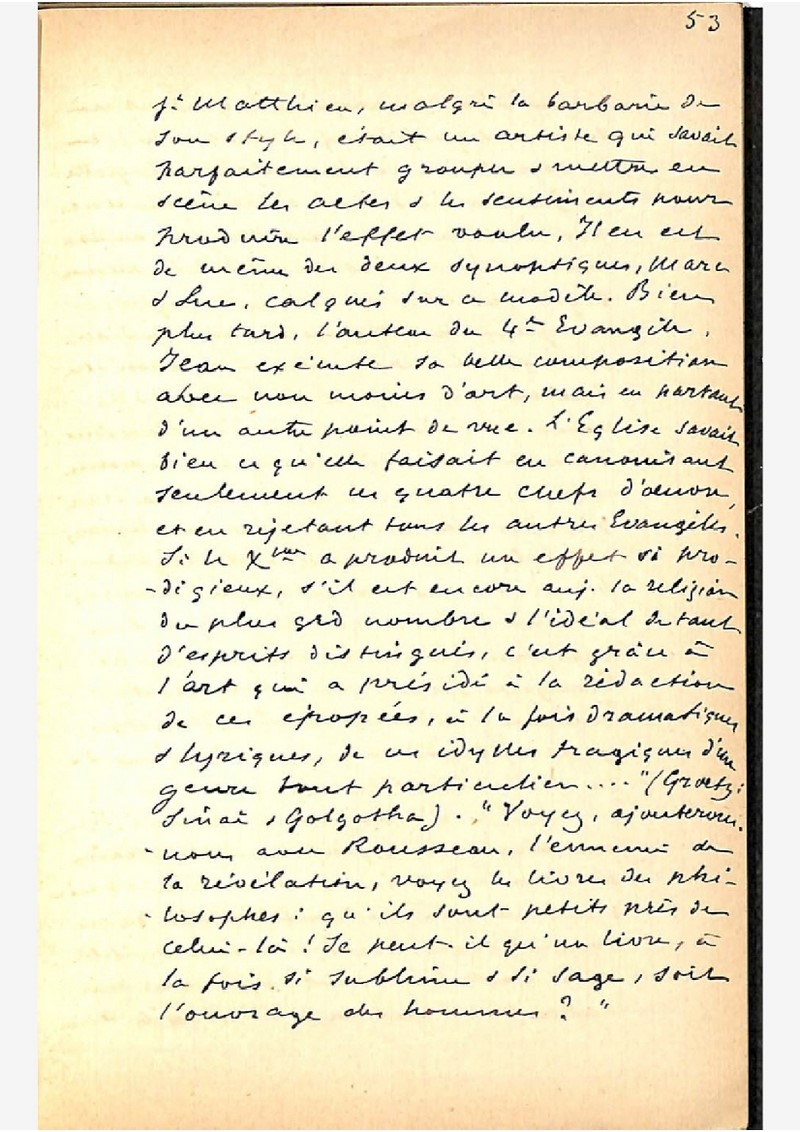 53
St Matthieu, malgré la barbarie de
son style, était un artiste qui savait
parfaitement grouper & mettre en
scène les actes & les sentiments pour
produire l'effet voulu. Il en est
de même des deux synoptiques, Marc
& Luc, calqués sur ce modèle. Bien
plus tard, l'auteur du 4e Evangile,
Jean exécute sa belle composition
avec non moins d'art, mais en partant
d'un autre point de vue. L'Eglise savait
bien ce qu'elle faisait en canonisant
seulement ces quatre chefs d'œuvre,
et en rejetant tous les autres Evangiles.
Si le Xme a produit un effet si pro-
-digieux, s'il est encore auj. la religion
du plus grd nombre & l'idéal de tant
d'esprits distingués, c'est grâce à
l'art qui a présidé à la rédaction
de ces épopées, à la fois dramatiques
& lyriques, de ces idylles tragiques d'un
genre tout particulier...." (Graetz:
Sinaï & Golgotha). "Voyez, ajouterons-
-nous avec Rousseau, l'ennemi de
la révélation, voyez les livres des phi-
-losophes: qu'ils sont petits près de
celui-là! Se peut-il qu'un livre, à
la fois si sublime & si sage, soit
l'ouvrage des hommes?"